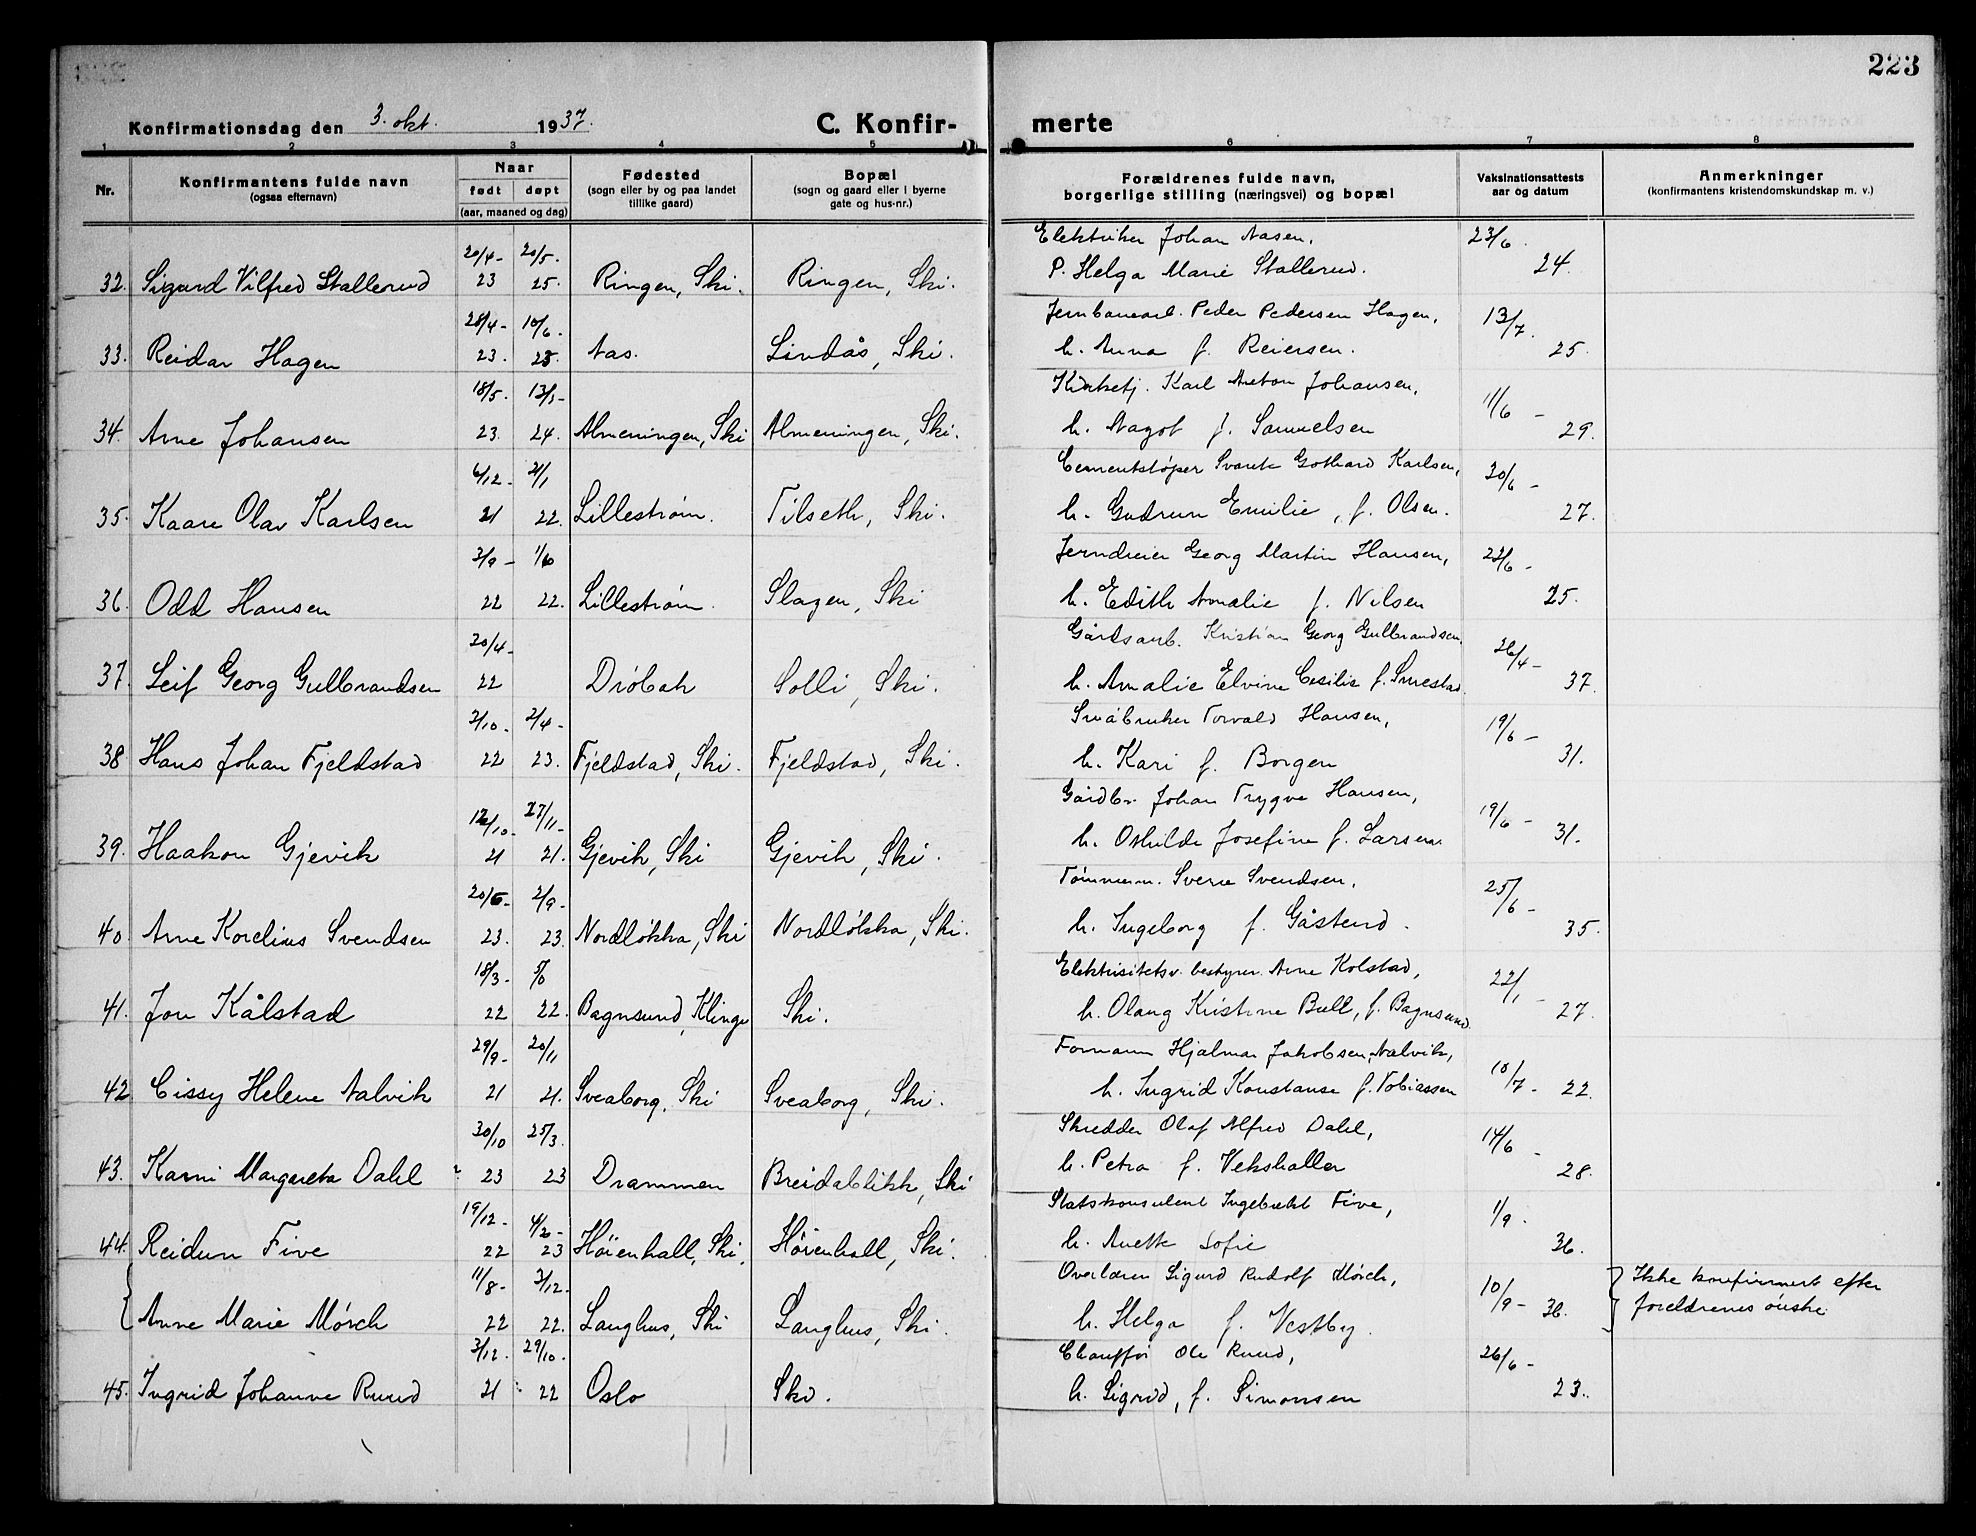 223
Konfirmationsdag den 3. okt. 1937.
C. Konfir-merte
1 2 3 4 5 6 7 8
Nr.
Konfirmantens fulde navn
(ogsaa efternavn)
Naar
født døpt
(aar, maaned og dag)
Fødested
(sogn eller by og paa landet
tillike gaard)
Bopæl
(sogn og gaard eller i byerne
gate og hus-nr.)
Forældrenes fulde navn,
borgerlige stilling (næringsvei) og bopæl
Vaksinationsattests
aar og datum
Anmerkninger
(konfirmantens kristendomskundskap m. v.)
20/4- 20/5- Elektriker Johan Aasen, 23/6.
32. Sigurd Vilfred Stallerud 23 25. Ringen, Ski. Ringen, Ski. P. Helga Marie Stallerud. 24.
28/4- 10/6- Jernbanearb. Peder Pedersen Hagen, 13/7.
33. Reidar Hagen 23. 23. Aas. Lindås, Ski. h. Anna f. Reiersen. 25.
18/5. Karl Anton Johansen, 11/6 -
34. Arne Johansen 23. 24. Almenningen, Ski Almenningen, Ski. h. Aagot f. Samuelsen 29.
6/12- 21/1 Cementstøper Gothard Karlsen, 30/6 -
35. Kaare Olav Karlsen 21 22. Lillestrøm. Tilseth, Ski. h. Gudrun Emilie, f. Olsen. 27.
3/9 - Jerndreier Georg Martin Hansen, 22/6 -
36. Odd Hansen 22 22. Lillestrøm. Slagen, Ski h. Edith Amalie f. Nilsen 25.
20/4- Gårdsarb. Kristian Georg Gulbrandsen, 26/4 -
37. Leif Georg Gulbrandsen 22 Drøbak Solli, Ski. h. Amalie Elvine Cesilie f. Smestad. 37.
2/10- 2/4- Småbruker Torvald Hansen, 19/6 -
38 Hans Johan Fjeldstad 22 23. Fjeldstad, Ski. Fjeldstad, Ski. h. Kari f. Borgen 31.
12/10- 27/11- Gårdbr. Johan Trygve Hansen, 19/6 -
39. Haakon Gjevik 21 21. Gjevik, Ski Gjevik, Ski. h. Oshilde Josefine f. Larsen. 31.
2/9- Tømmerm. Sverre Svendsen, 25/6 -
40. Arne Kornelius Svendsen 23. 23. Nordløkka, Ski Nordløkka, Ski. h. Ingeborg f. Gåsterud. 35.
18/3- Elektrisitetsv. bestyrer Arne Kolstad, 22/1 -
41. Jon Kålstad 22 22. Bagnsund, Klinge Ski. h. Olaug Kristine Bull, f. Bagnsund. 27.
29/9- 20/11 Formann Hjalmar Jakobsen Aalvik,
42 Cissy Helene Aalvik 21 21. Sveaborg, Ski Sveaborg, Ski. h. Ingrid Konstanse f. Tobiassen 10/7 - 22.
30/10 25/3. Skredder Olaf Alfred Dahl, 14/6 -
43. Karni Margareta Dahl 23 23 Drammen Breidablikk, Ski h. Petra f. Vekshaller 28.
19/12- 4/2- Statskonsulent Ingebrekt Five, 1/9.
44. Reidun Five 22 23 Høienhall, Ski. Høienhall, Ski. h. Anette Sofie 36.
11/8- 3/12- Overlærer Sigurd Rudolf Mørch, 10/9- Ikke konfirmert efter
Anne Marie Mørch 22 22. Langhus, Ski Langhus, Ski. h. Helga f. Vestby. 36. foreldrenes ønske.
3/12. 29/10. Chauffør Ole Ruud, 26/6 -
45. Ingrid Johanne Ruud 21 22 Oslo Ski. h. Sigrid, f. Simonsen 23.